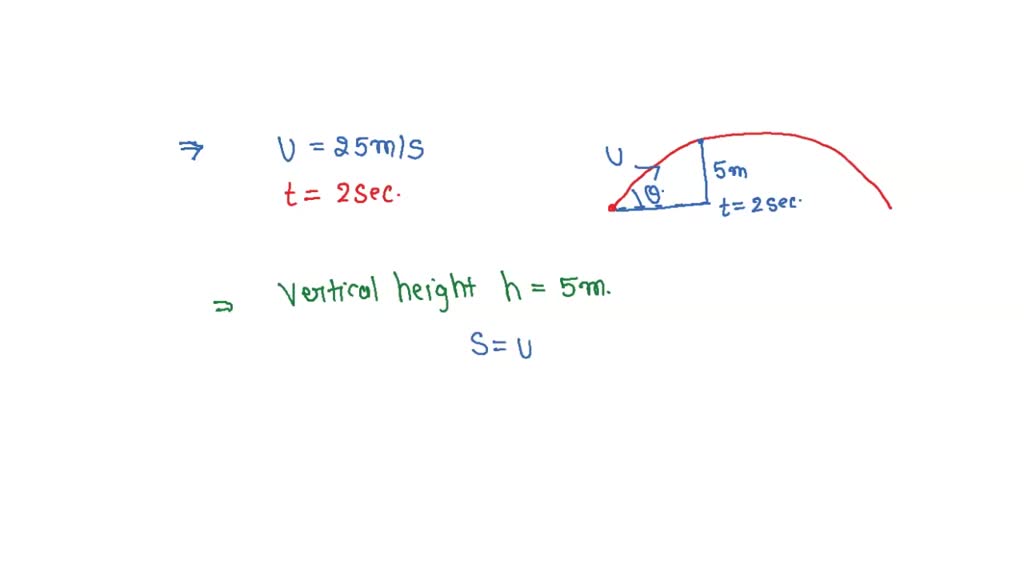 ⇒ U = 25m/s
t = 2sec.
U
θ
5m
t = 2sec.
⇒ Vertical height h = 5m.
S = U